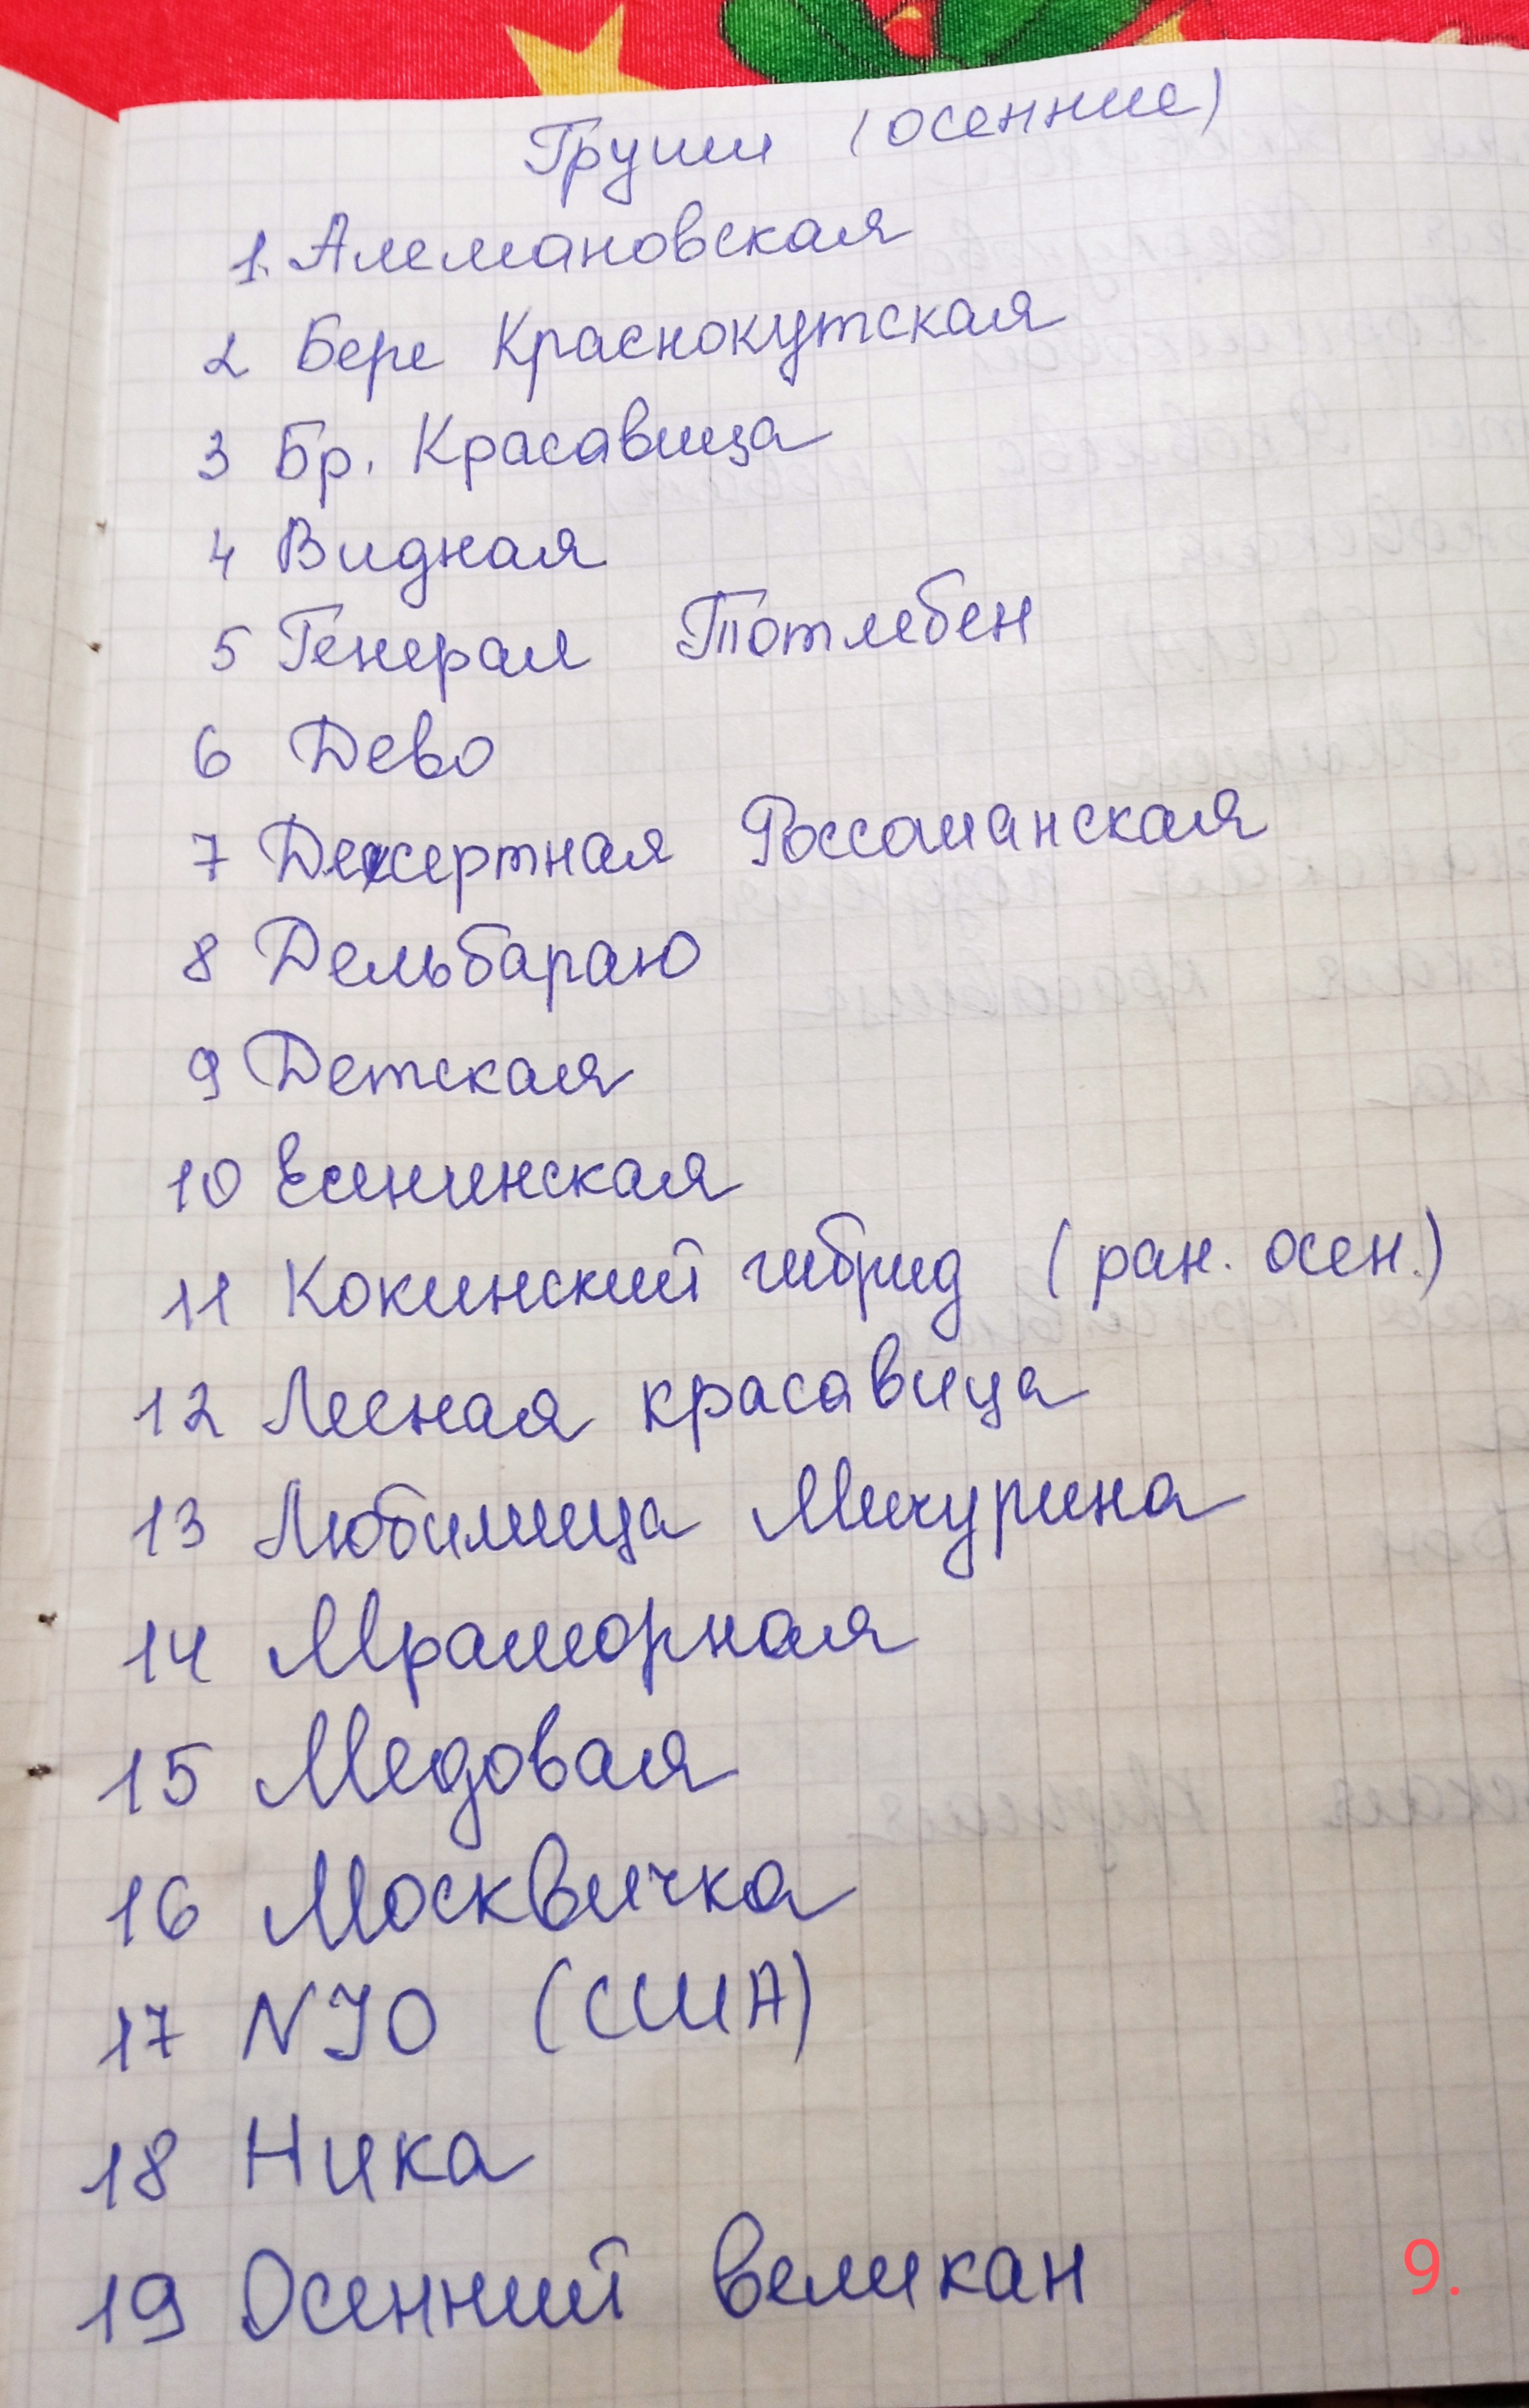 Груши (осенние)
1. Алемановская
2 Бере Краснокутская
3 Бр. Красавица
4 Видная
5 Генерал Тотлебен
6 Дево
7 Десертная Россошанская
8 Дельбараю
9 Детская
10 Есенинская
11 Кокинский гибрид (ран. осен.)
12 Лесная красавица
13 Любимица Мичурина
14 Мраморная
15 Медовая
16 Москвичка
17 NJО (США)
18 Ника
19 Осенний великан
9.